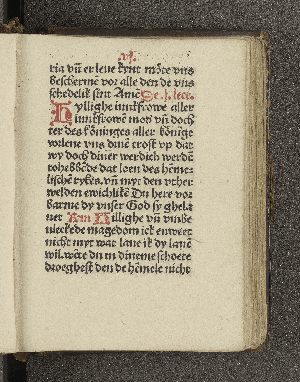 ria vñ er leue kynt mote vns
bescherme vor alle den de vns
schedelik sint Amē De .i. lecc.
Hyllighe iunkfrowe aller
iunkfrowē mod vñ doch
ter des köninges aller könige
vns dinē trost vp dat
wy doch diner werdich werdē
to hebbēde dat loen des hēme
lischē rykes. vñ myt den vther
welden ewichlikē Du here vor
barme dy vnser God sy ghela
uet Am Hillighe vñ vnbe
uleckede magedom ick enweet
nicht myt wat laue ik dy lauē
wil. wēte du in dineme schoete
droeghest den de hēmele nicht